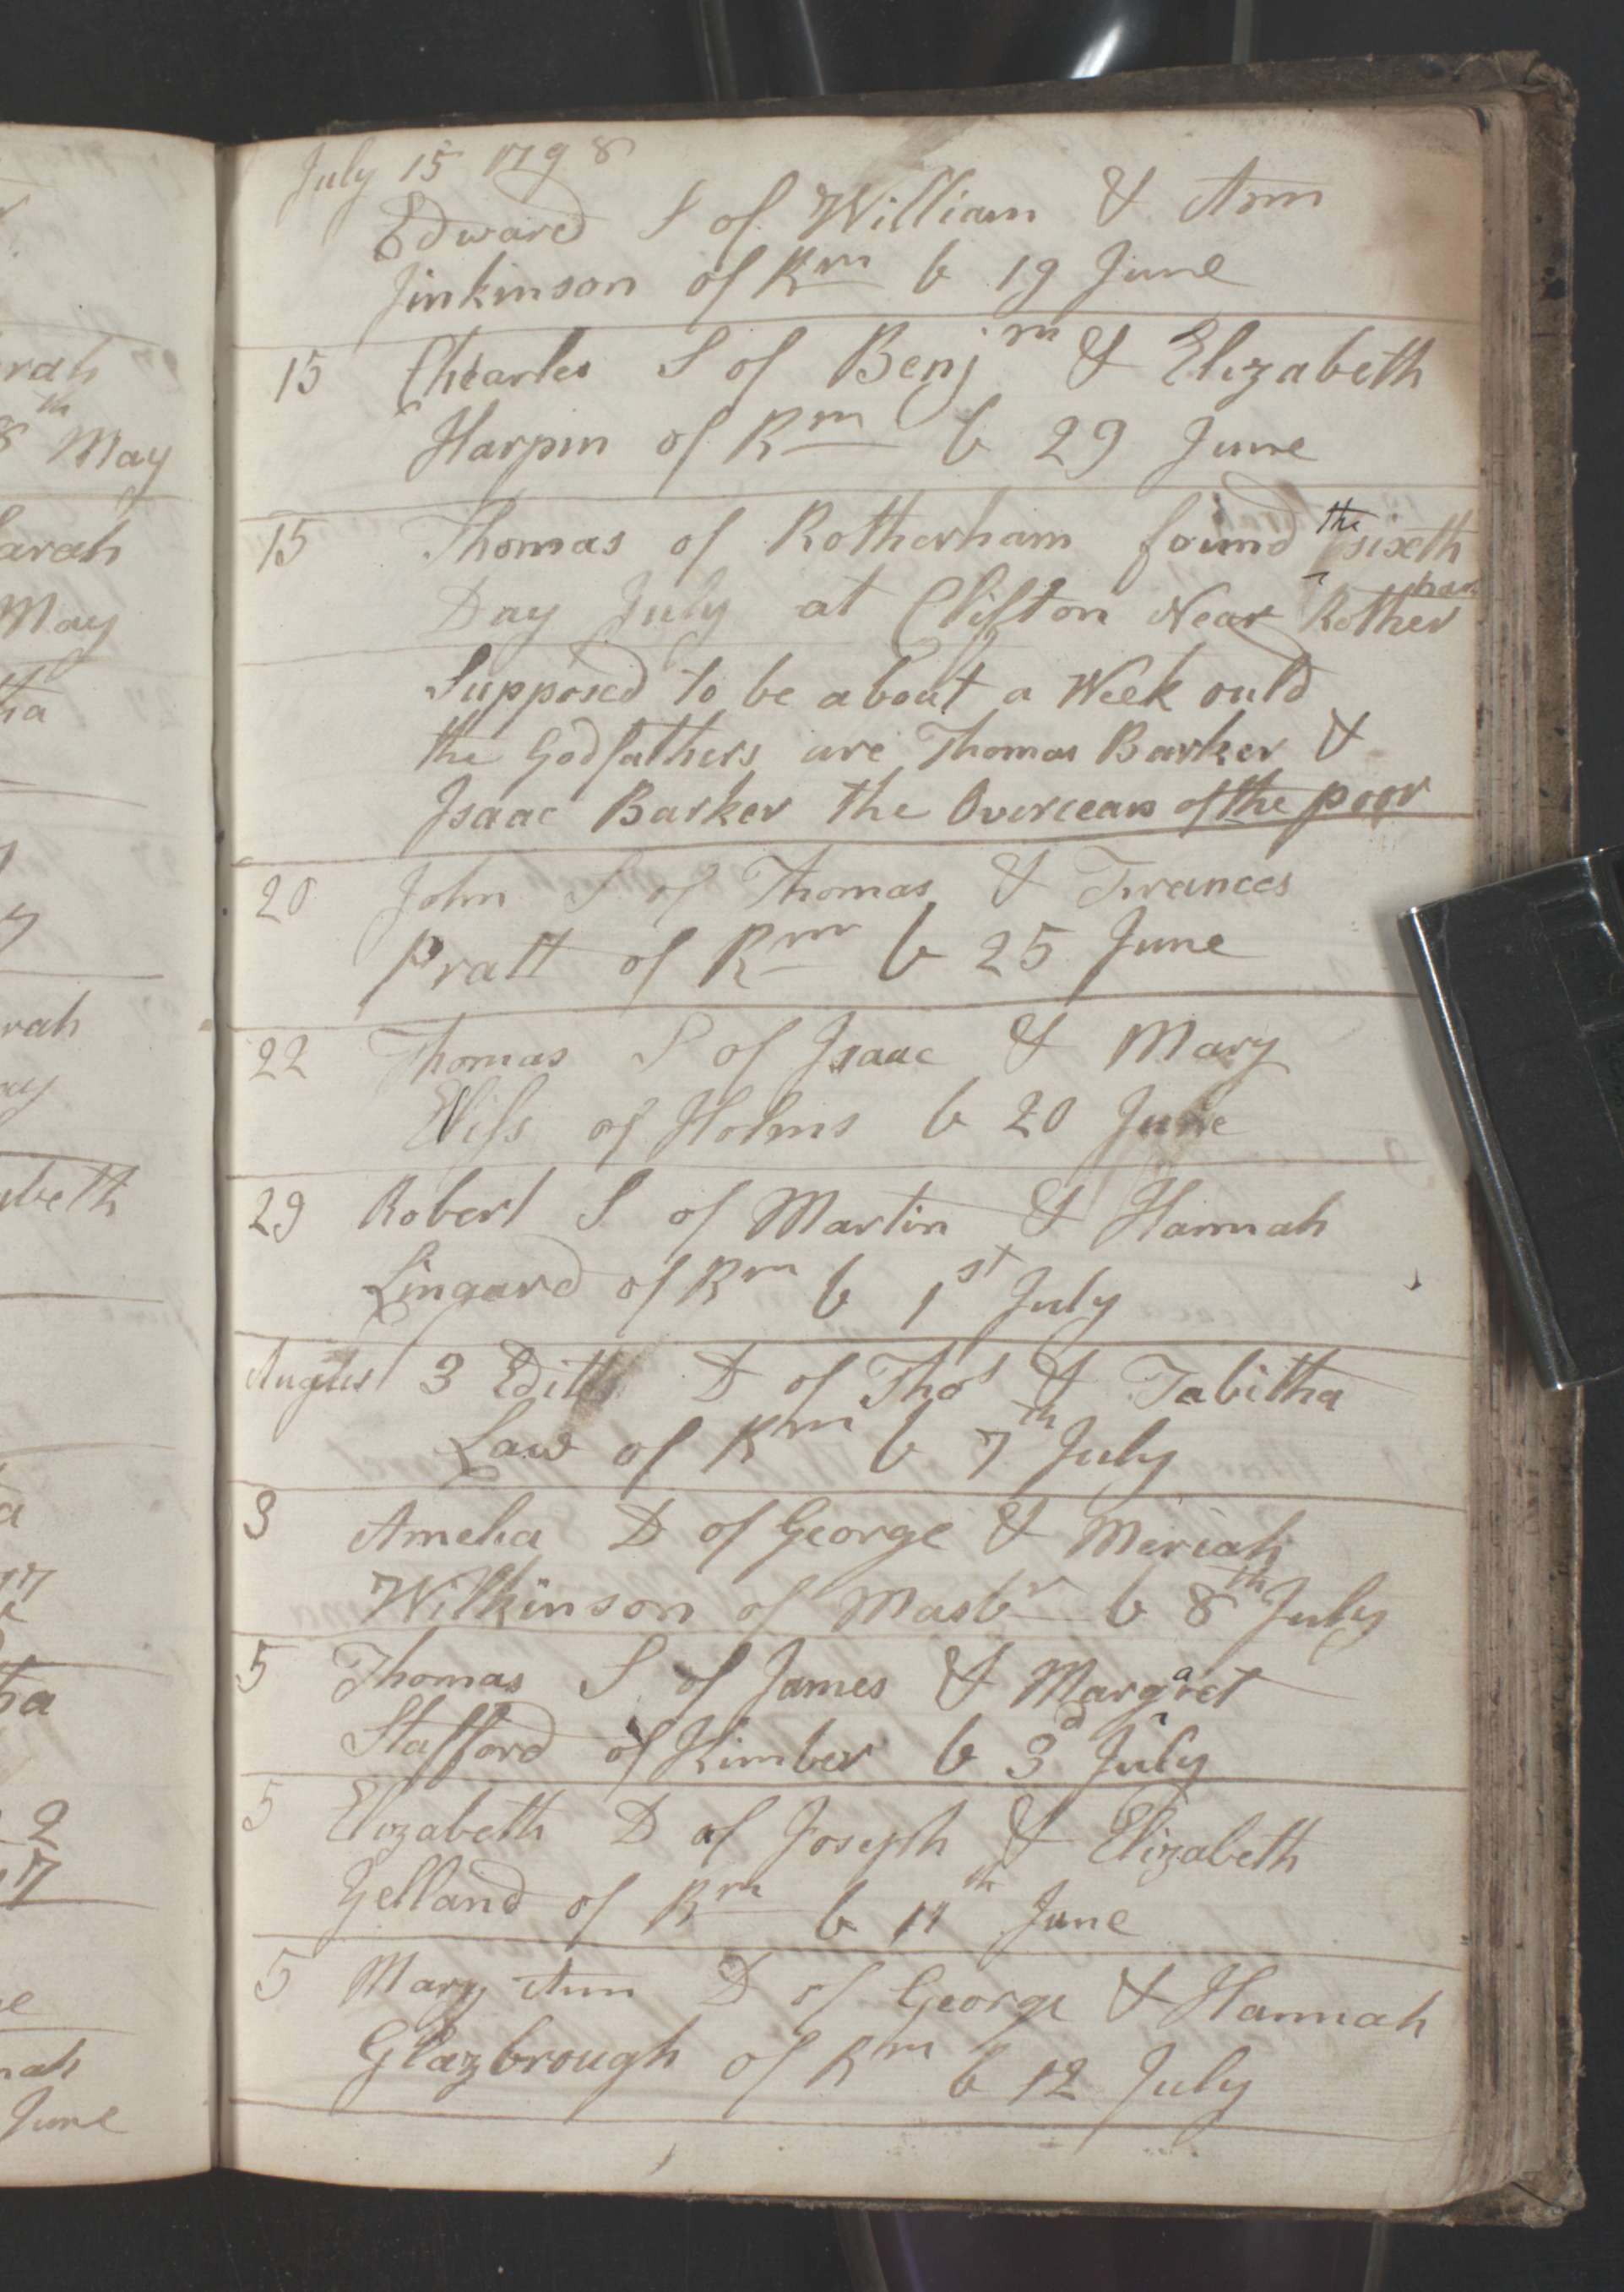 rah
8th May
Sarah
May
ha
7
rah
ay
abeth
a
17
ha
2
17
e
nah
June
July 15 1798
Edward S of William & Ann
Jinkinson of Rm b 19 June
15 Charles S of Benjm & Elizabeth
Harpin of Rm b 29 June
15 Thomas of Rotherham found the sixth
Day July at Clifton Near Rotherham
Supposed to be about a Week ould
the Godfathers are Thomas Barker &
Isaac Barker the Overcears of the poor
20 John S of Thomas & Frances
Pratt of Rm b 25 June
22 Thomas S of Isaac & Mary
Eliss of Holms b 20 June
29 Robert S of Martin & Hannah
Lingard of Rm b 1st July
August 3 Edith D of Thos & Tabitha
Law of Rm b 7th July
3 Amelia D of George & Meriah
Wilkinson of Masbr b 8th July
5 Thomas S of James & Margaret
Stafford of Kimber b 3d July
5 Elizabeth D of Joseph & Elizabeth
Yelland of Rm b 11th June
5 Mary Ann D of George & Hannah
Glazbrough of Rm b 12 July